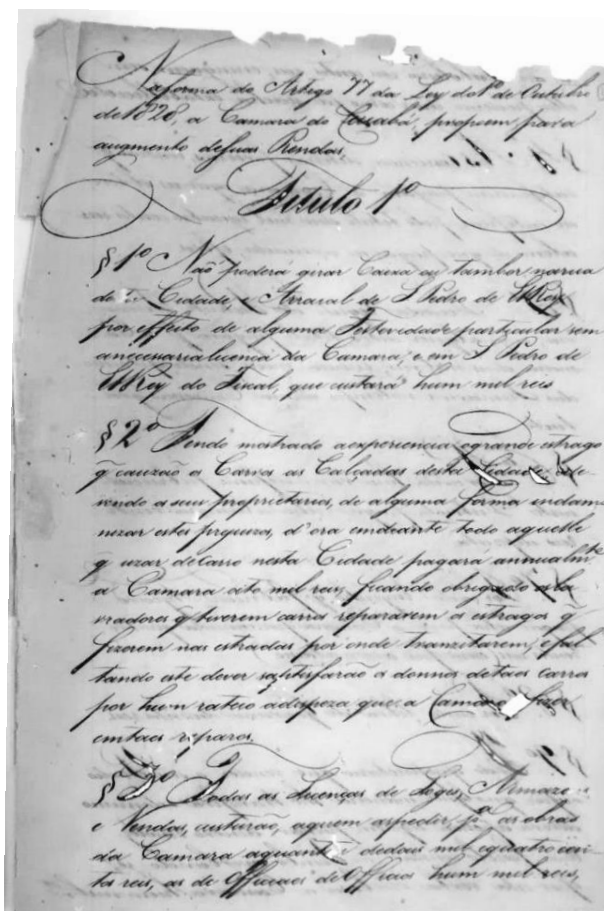 Naforma do Artigo 77 da Ley do 1º de Outubro
de 1828, a Camara do Cuiabá, propoem para
augmento desuas Rendas,
Titulo 1º
§ 1º Não poderá girar Caixa ou tambor narua
de Cidade, e Arraial de S Pedro de ElRey
por effeito de alguma Festividade particular sem
anecessaria licença da Camara, e em S Pedro de
ElRey do Fiscal, que custará hum mil reis
§ 2º Tendo mostrado aexperiencia ogrande estrago
q̃ cauzão os Carros as Calçadas desta Cidade, e de-
vendo aseus proprietarios, de alguma forma indem-
nizar estes prejuizos, d'ora emdeante todo aquelle
q̃ uzar deCarro nesta Cidade pagará annualmte
a Camara oito mil reis, ficando obrigado os la-
vradores q̃ tiverem carros repararem os estragos q̃
fizerem nas estradas por onde tranzitarem, efal-
tando aste dever satisfarão os donnos detaes carros
por hum rateio adespeza que a Camara fizer
emtaes reparos.
§ 3º Todas as Licenças de Loges, Armazens
e Vendas, custarão, aquem aspedir, pª as obras
da Camara aquantia dedois mil equatro cen-
tos reis, as de Officiaes de Officios hum mil reis,